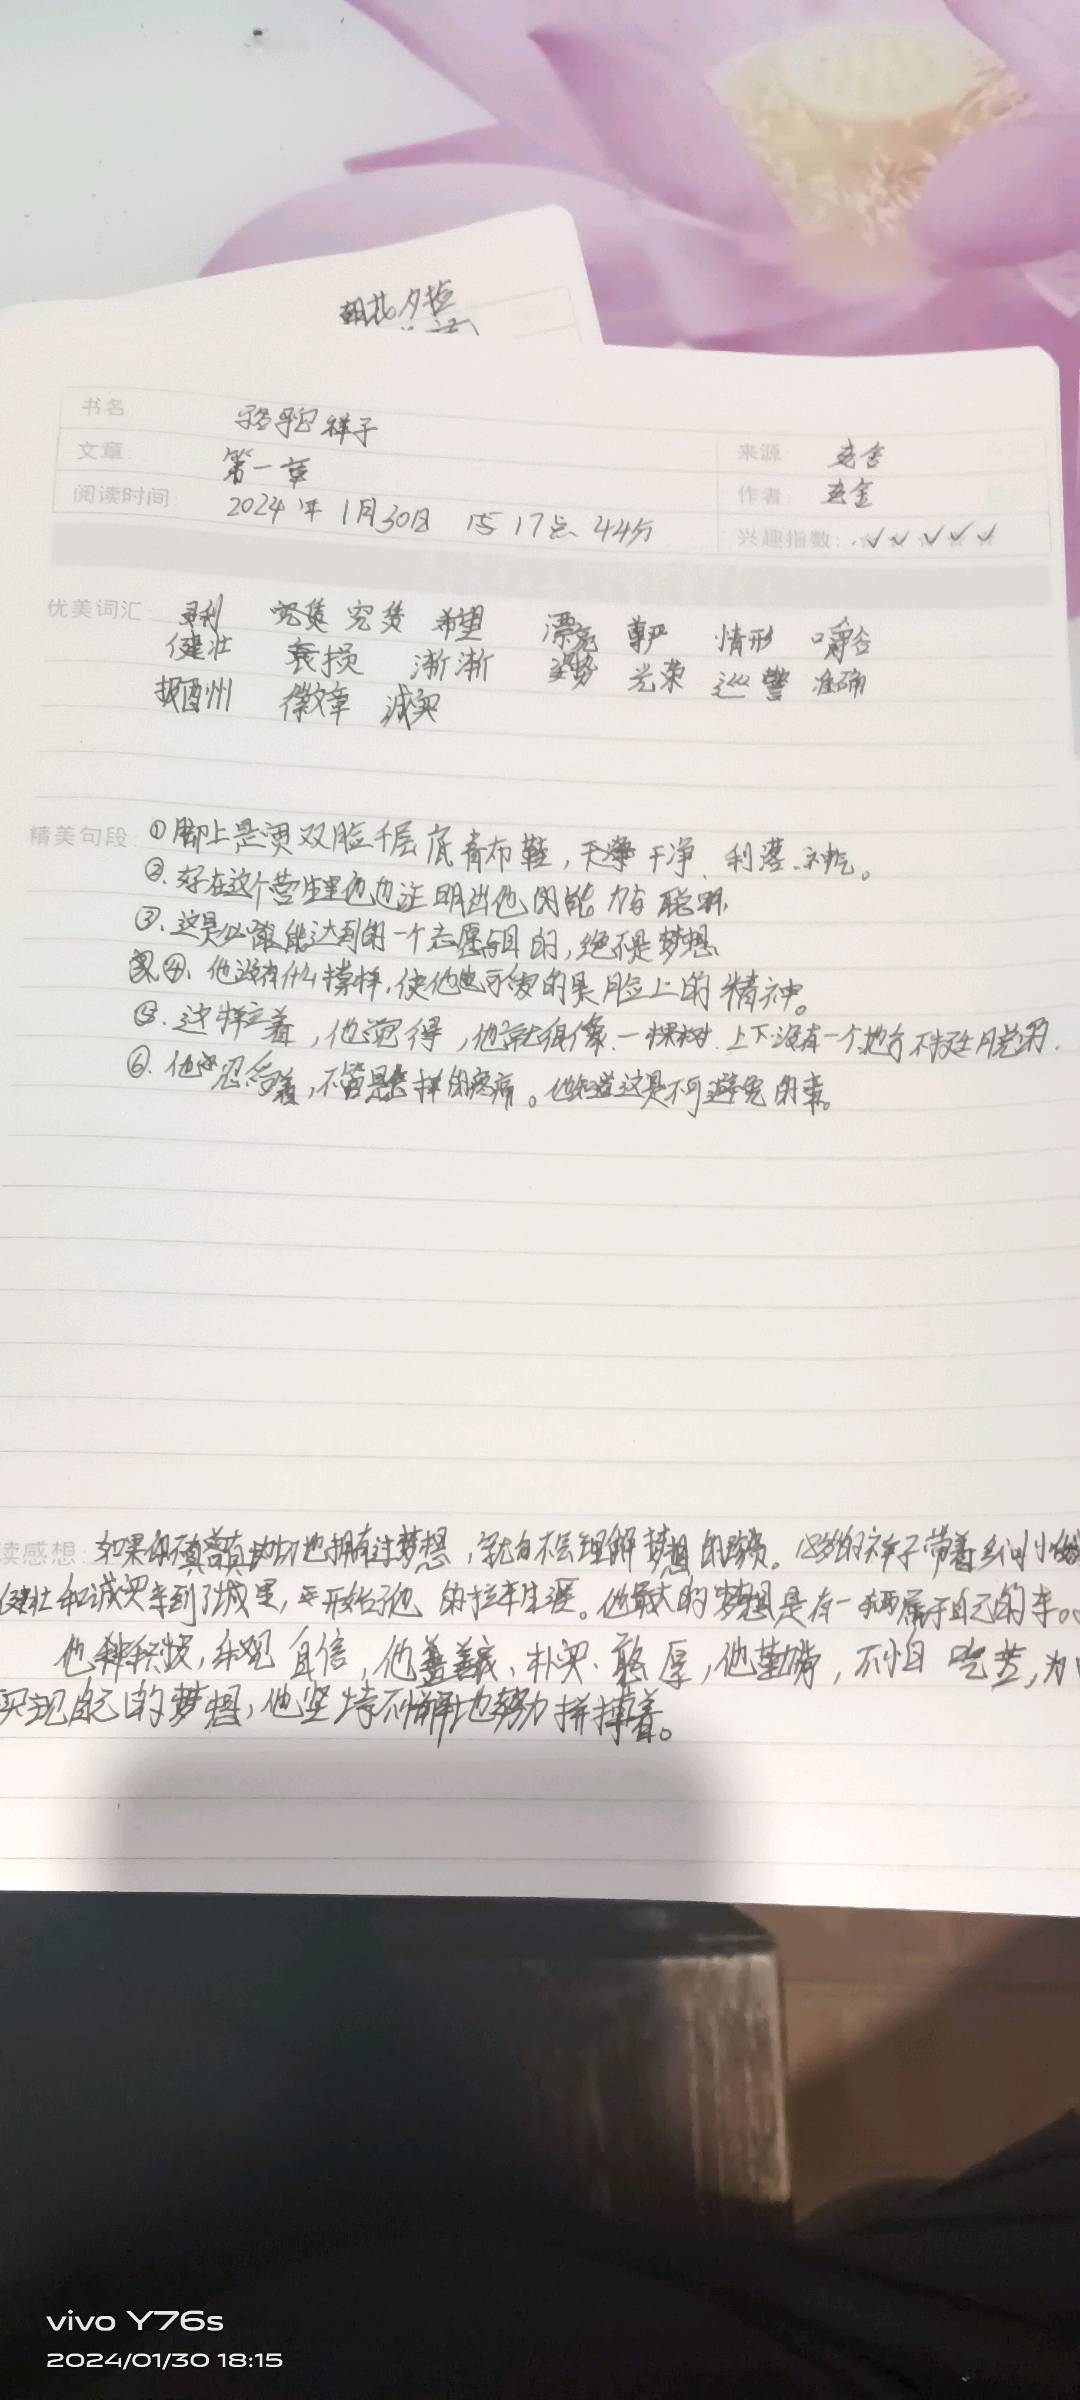 朝花夕拾
书名 骆驼祥子
文章 第一章 来源 老舍
阅读时间: 2024年1月30日 15 17点 44分 作者 老舍
兴趣指数: ✓✓✓✓✓
优美词汇: 希望 漂亮 尊严 情形 嚼谷
健壮 衰损 渐渐 姿势 光荣 巡警 准确
报酬 徽章 诚实
精美句段: ①脚上是 双脸千层底青布鞋, 干净 利落 神气。
②. 好在这个营生里他也证明出他的能力与聪明
③. 这是必能达到的一个志愿与目的, 绝不是梦想
④. 他没有什么模样, 使他 可爱的是脸上的精神。
⑤. 这样立着, 他觉得, 他就很像一棵树, 上下没有一个地方不挺脱的.
⑥. 他 忍受着, 不管是怎样的疼痛。他知道这是不可避免的事。
读感想: 如果你不 真切地拥有过梦想, 就 不会理解梦想的 。18岁的祥子带着乡间小伙
健壮和诚实来到了城里, 开始了他的拉车生涯。他最大的梦想是有一辆属于自己的车。
他 积极, 乐观 自信, 他 善良、朴实、憨厚, 他勤 , 不怕吃苦, 为
实现自己的梦想, 他坚持不懈地努力拼搏着。
vivo Y76s
2024/01/30 18:15